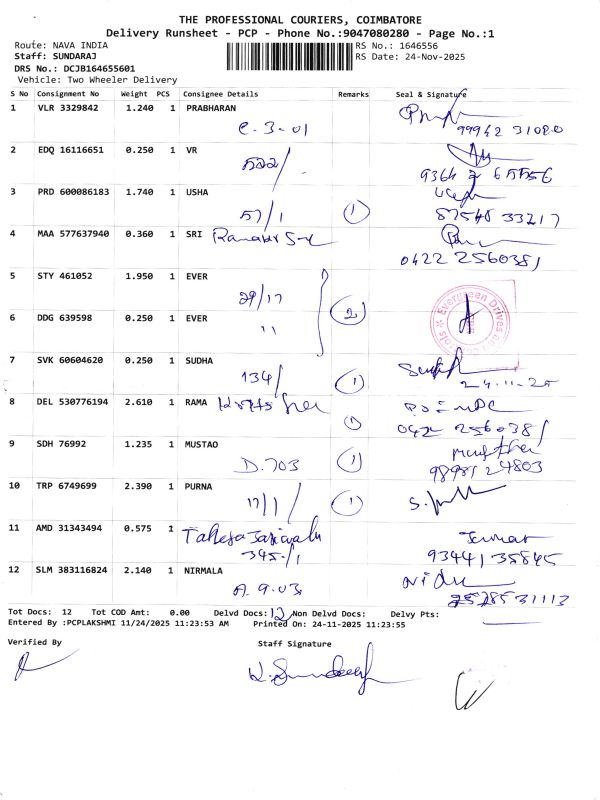 THE PROFESSIONAL COURIERS, COIMBATORE
Delivery Runsheet - PCP - Phone No.:9047080280 - Page No.:1
Route: NAVA INDIA RS No.: 1646556
Staff: SUNDARAJ RS Date: 24-Nov-2025
DRS No.: DCJB164655601
Vehicle: Two Wheeler Delivery
S No Consignment No Weight PCS Consignee Details Remarks Seal & Signature
1 VLR 3329842 1.240 1 PRABHARAN
C.3-01
2 EDQ 16116651 0.250 1 VR
522/
3 PRD 600086183 1.740 1 USHA
57/1 1 87548 33217
4 MAA 577637940 0.360 1 SRI
0422 2560381
5 STY 461052 1.950 1 EVER
29/17
2
6 DDG 639598 0.250 1 EVER
11
7 SVK 60604620 0.250 1 SUDHA
134/ 1 24.11.25
8 DEL 530776194 2.610 1 RAMA
1
9 SDH 76992 1.235 1 MUSTAO
D.703 1
10 TRP 6749699 2.390 1 PURNA
17/1/ 1
11 AMD 31343494 0.575 1
345/1 93441 35845
12 SLM 383116824 2.140 1 NIRMALA
A.9.03
Tot Docs: 12 Tot COD Amt: 0.00 Delvd Docs: 12 Non Delvd Docs: Delvy Pts:
Entered By :PCPLAKSHMI 11/24/2025 11:23:53 AM Printed On: 24-11-2025 11:23:55
Verified By Staff Signature
K. Sundaraj